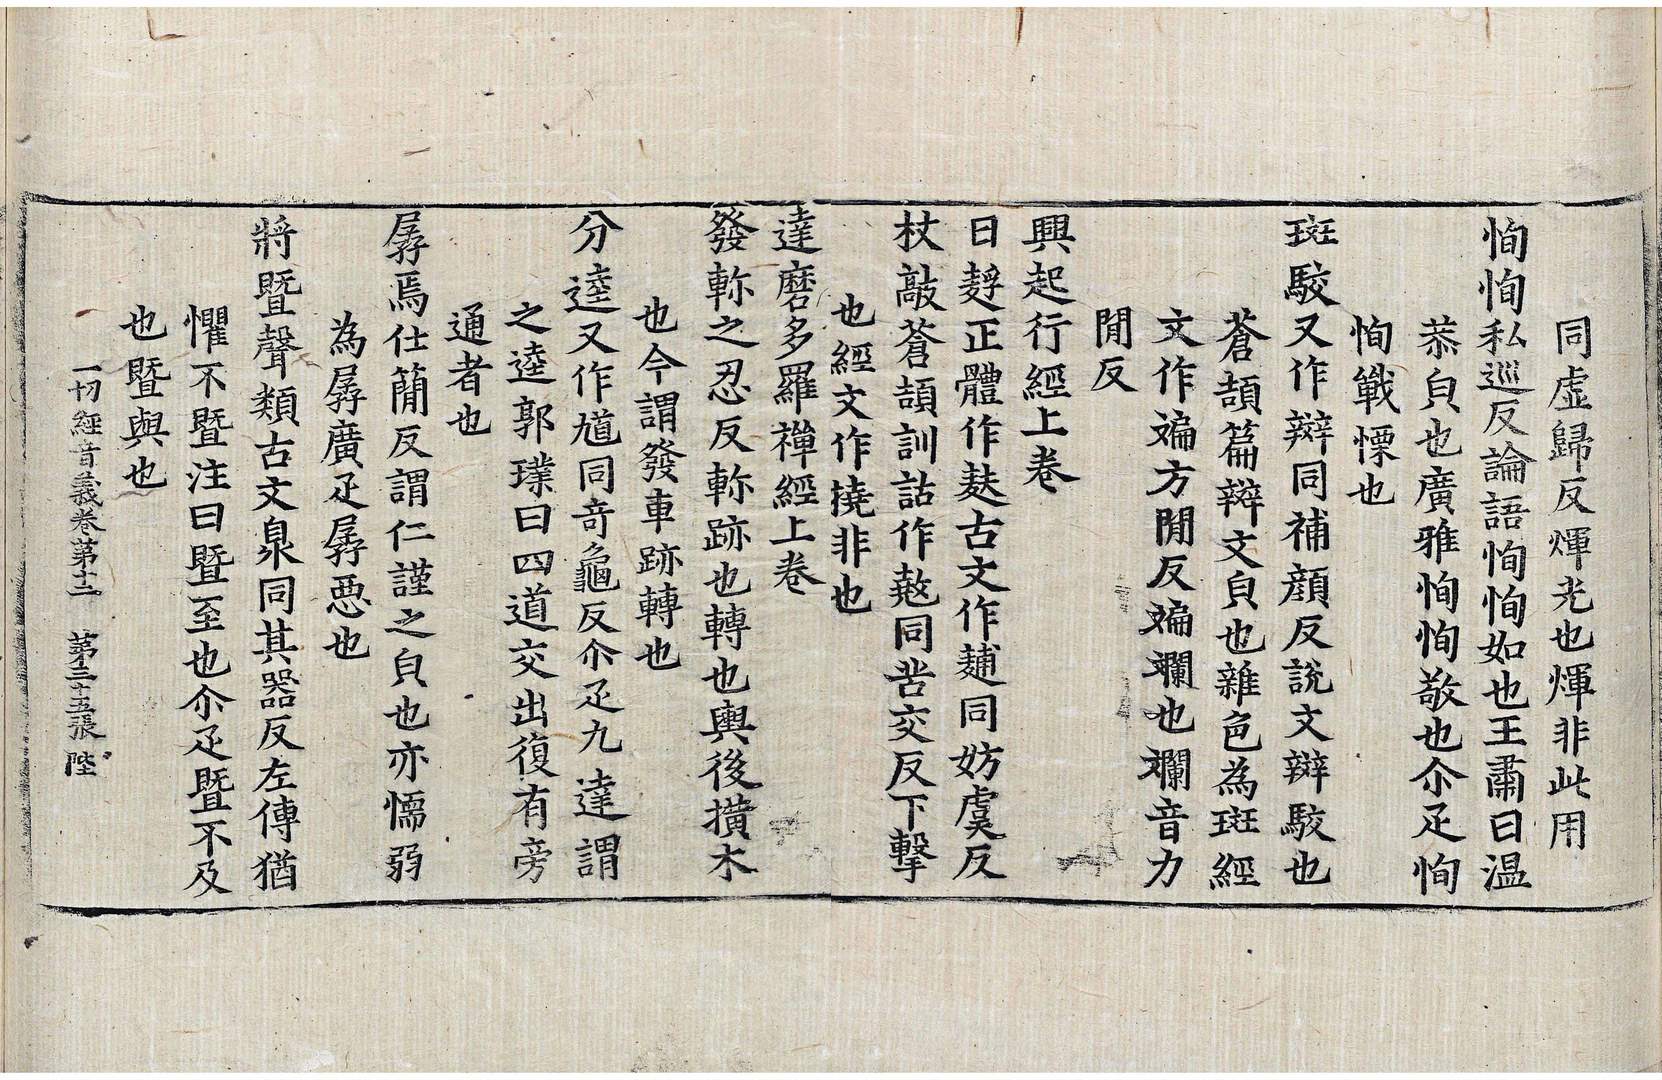 同虛歸反煇光也煇非此用
恂恂私巡反論語恂恂如也王肅曰溫
恭皃也廣雅恂恂敬也尒疋恂
恂戰慄也
斑駮又作辬同補顔反說文辬駮也
蒼頡篇辬文皃也雜色為斑經
文作斒方閒反斒斕也斕音力
閒反
興起行經上卷
日麨正體作麩古文作䴸同妨虞反
杖敲蒼頡訓詁作㲉同苦交反下擊
也經文作撓非也
達磨多羅禪經上卷
發軫之忍反軫跡也轉也輿後橫木
也今謂發車跡轉也
分逵又作馗同奇龜反尒疋九達謂
之逵郭璞曰四道交出復有旁
通者也
孱焉仕簡反謂仁謹之皃也亦懦弱
為孱廣疋孱惡也
將暨聲類古文臮同其器反左傳猶
懼不暨注曰暨至也尒疋暨不及
也暨與也
一切經音義卷第十二 第三十五張 陛